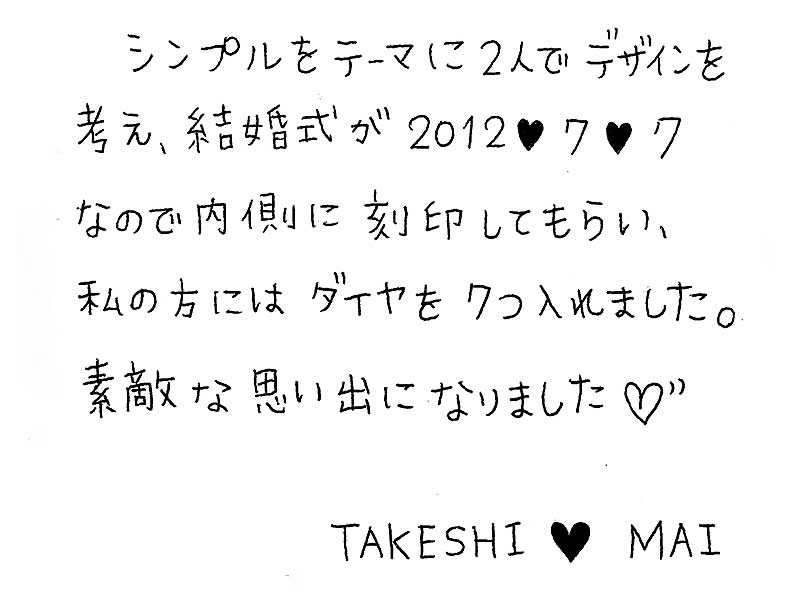 シンプルをテーマに2人でデザインを
考え、結婚式が2012♥7♥7
なので内側に刻印してもらい、
私の方にはダイヤを7つ入れました。
素敵な思い出になりました♡"
TAKESHI ♥ MAI